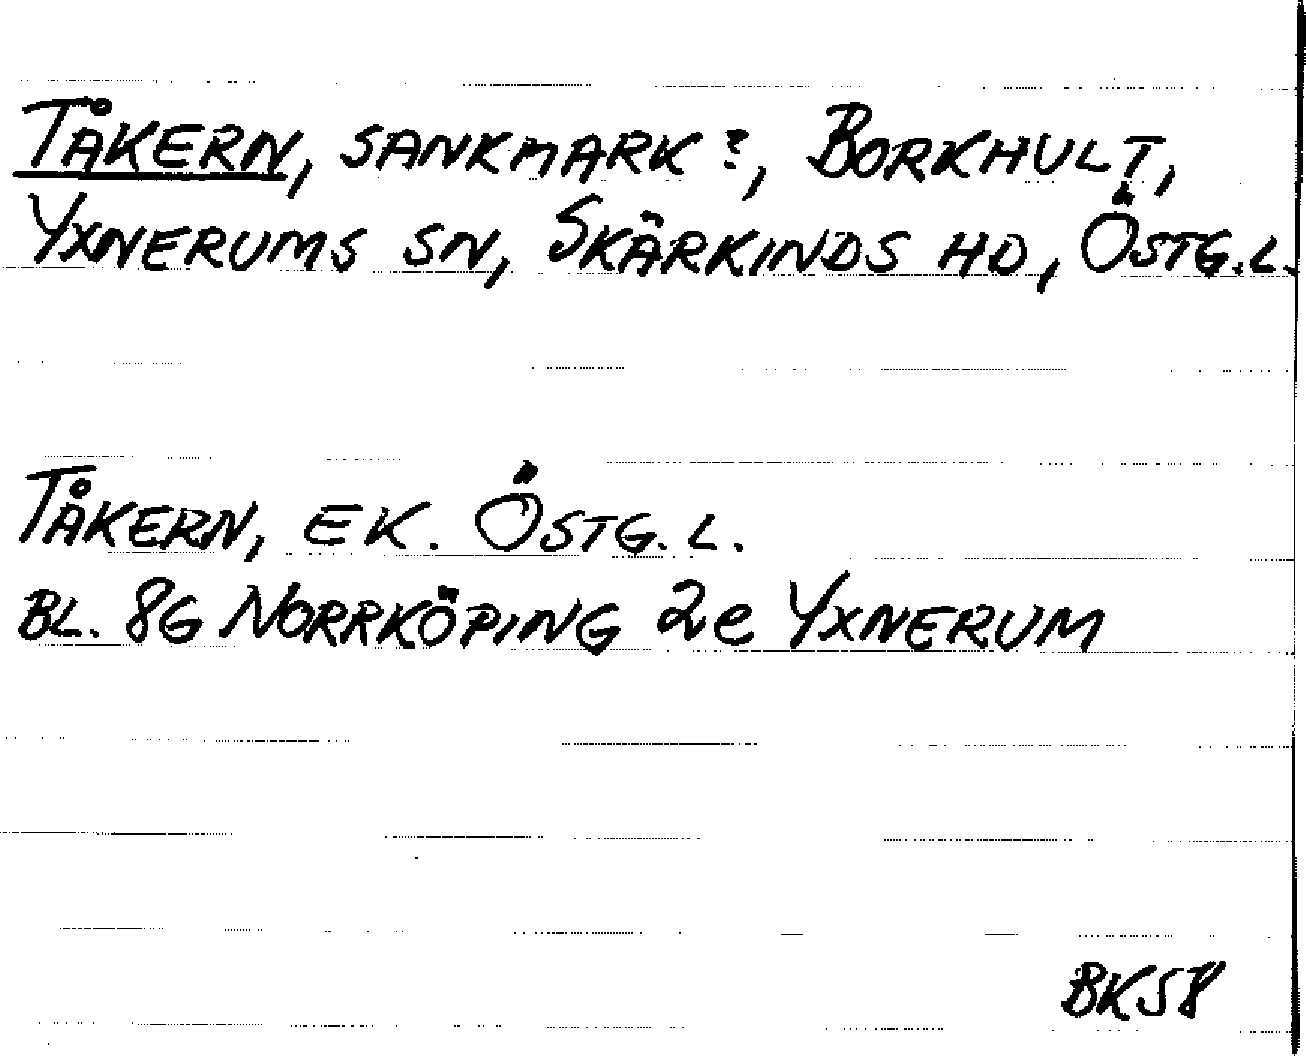 TÅKERN, SANKMARK?, BORKHULT,
YXNERUMS SN, SKÄRKINDS HD, ÖSTG.L.
TÅKERN, EK. ÖSTG. L.
BL. 8G NORRKÖPING 2e YXNERUM
BK58